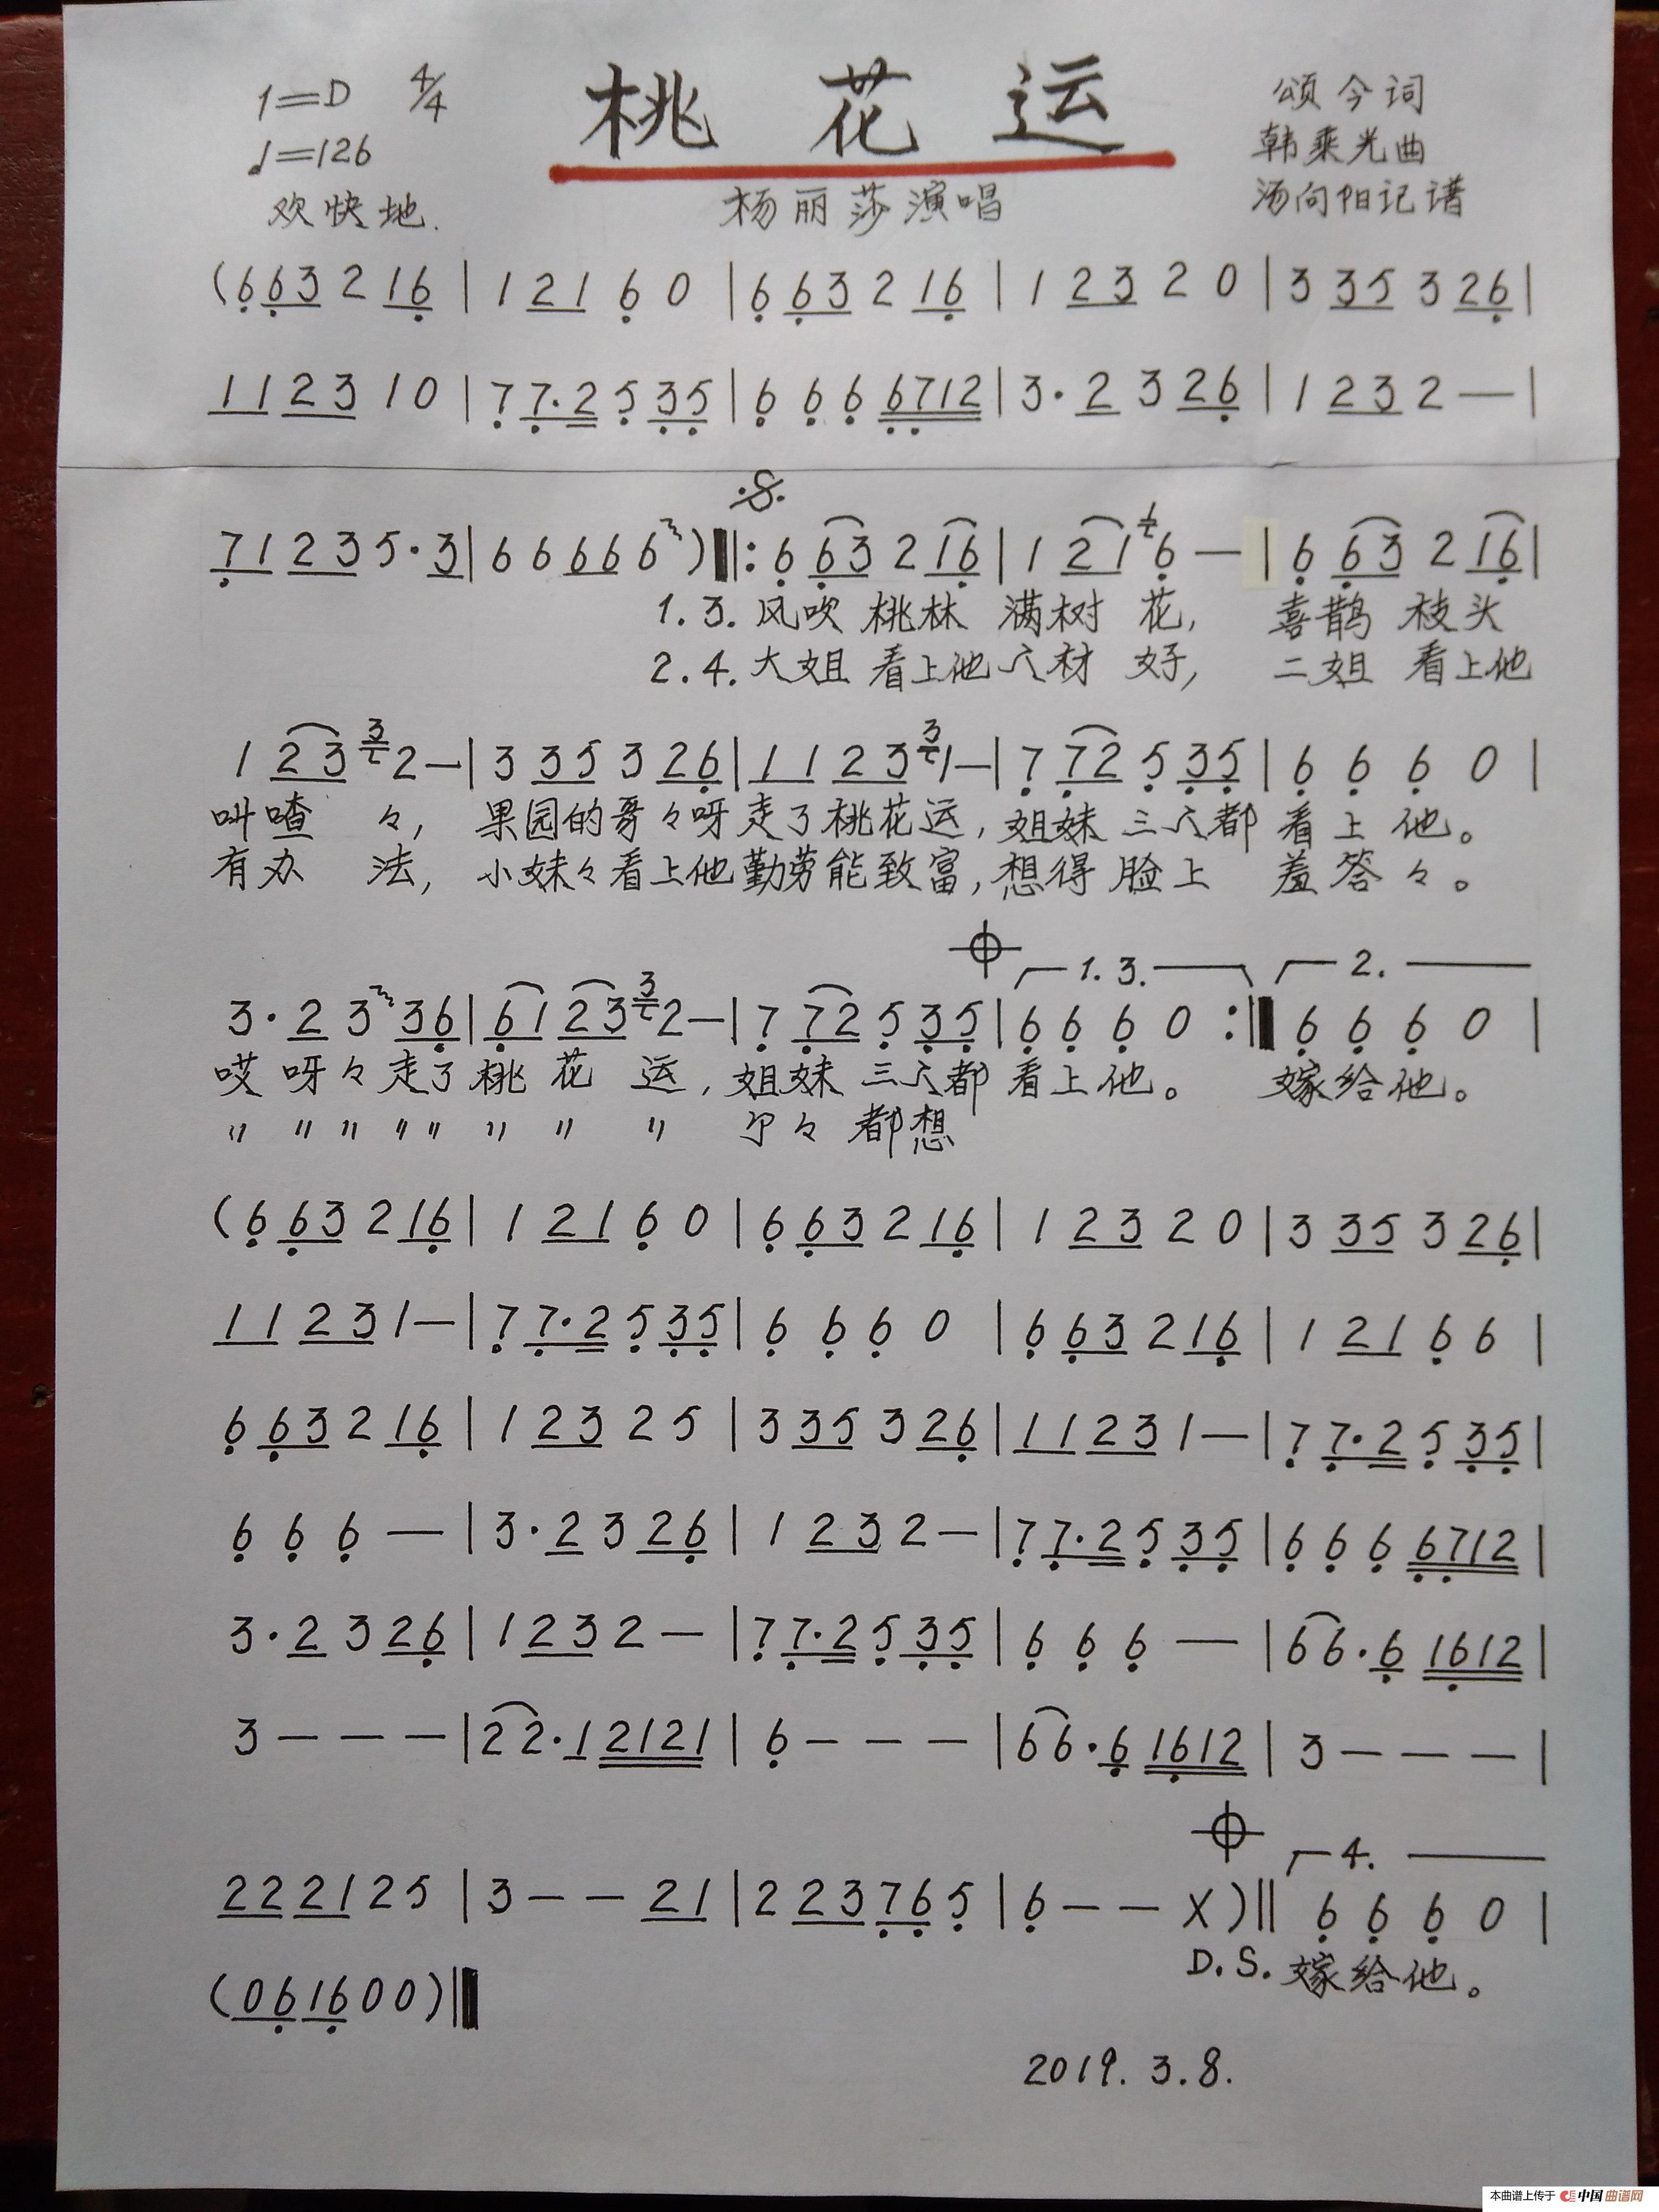 1=D 4/4 桃花运 颂今词
♩=126 韩乘光曲
欢快地. 杨丽莎演唱 汤向阳记谱
(663 2 16 | 1 21 6 0 | 6 63 2 16 | 1 23 2 0 | 3 35 3 26 |
11 23 1 0 | 7 7·2 5 35 | 6 6 6 6712 | 3·2 3 26 | 1 23 2 — |
71 23 5·3 | 6 6 66 6 ) ‖: 6 63 2 16 | 1 21 6 6 — | 6 63 2 16 |
1.3. 风吹 桃林 满树 花, 喜鹊 枝头
2.4. 大姐 看上他 人材 好, 二姐 看上他
1 23 3 2 — | 3 35 3 26 | 11 23 3 1 — | 7 72 5 35 | 6 6 6 0 |
叫喳 々, 果园的哥々呀走了桃花运, 姐妹 三人都 看上他。
有办 法, 小妹々看上他勤劳能致富, 想得脸上 羞答々。
1. 3. 2.
3·2 3 36 | 61 23 3 2 — | 7 72 5 35 | 6 6 6 0 :‖ 6 6 6 0 |
哎 呀々走了桃 花 运, 姐妹 三人都 看上他。 嫁给他。
" " " " " " " " 个々 都想
(6 63 2 16 | 1 21 6 0 | 6 63 2 16 | 1 23 2 0 | 3 35 3 26 |
11 23 1 — | 7 7·2 5 35 | 6 6 6 0 | 6 63 2 16 | 1 21 6 6 |
6 63 2 16 | 1 23 2 5 | 3 35 3 26 | 11 23 1 — | 7 7·2 5 35 |
6 6 6 — | 3·2 3 26 | 1 23 2 — | 7 7·2 5 35 | 6 6 6 6712 |
3·2 3 26 | 1 23 2 — | 7 7·2 5 35 | 6 6 6 — | 6 6·6 1612 |
3 — — — | 2 2·1 2121 | 6 — — — | 6 6·6 1612 | 3 — — — |
4.
22 21 2 5 | 3 — — 21 | 2 23 76 5 | 6 — — X )‖ 6 6 6 0 |
D.S. 嫁给他。
(06 16 0 0)‖
2019. 3. 8.
本曲谱上传于 中国曲谱网